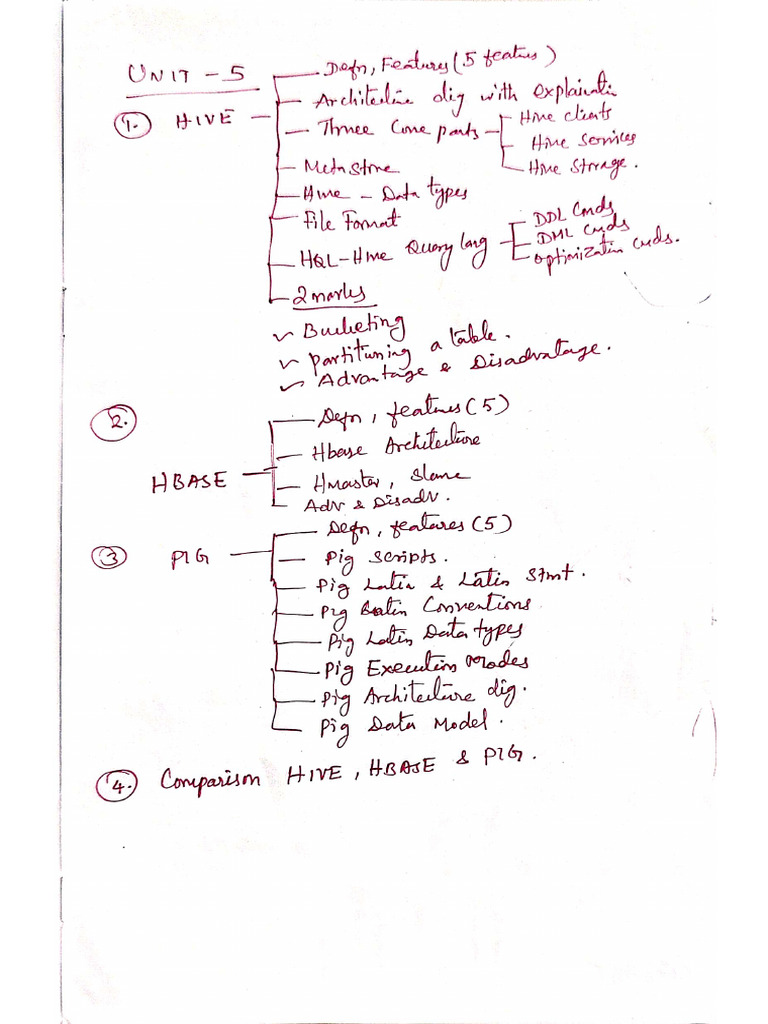 UNIT - 5
Defn, Features (5 featurs)
1. HIVE
Architecture dig with explainatin
Three Core parts
Hive clients
Hive Services
Hive Storage.
Meta Store
Hive - Data types
File Format
HQL - Hive Query lang
DDL Cmds
DML Cmds
Optimization Cmds.
2 marks
Bucketing
Partitioning a table.
Advantage & Disadvatage.
2.
Defn, features (5)
Hbase Architecture
HBASE
Hmaster, Slave
Adv & Disadv.
3 PIG
Defn, features (5)
Pig Scripts.
Pig Latin & Latin Stmt.
Pig Latin Conventions
Pig Latin Data types
Pig Execution Modes
Pig Architecture dig.
Pig Data Model.
4. Comparison HIVE, HBASE & PIG.